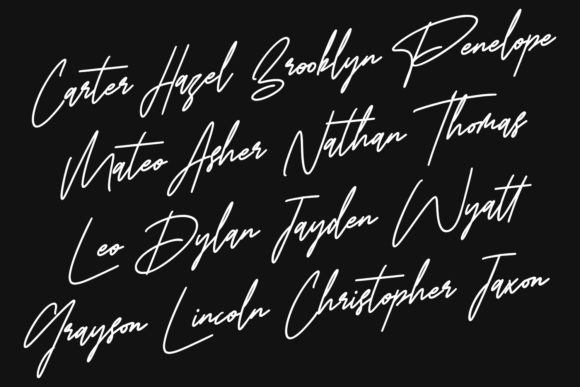 Carter Hazel Brooklyn Penelope
Mateo Asher Nathan Thomas
Leo Dylan Jayden Wyatt
Grayson Lincoln Christopher Jaxon